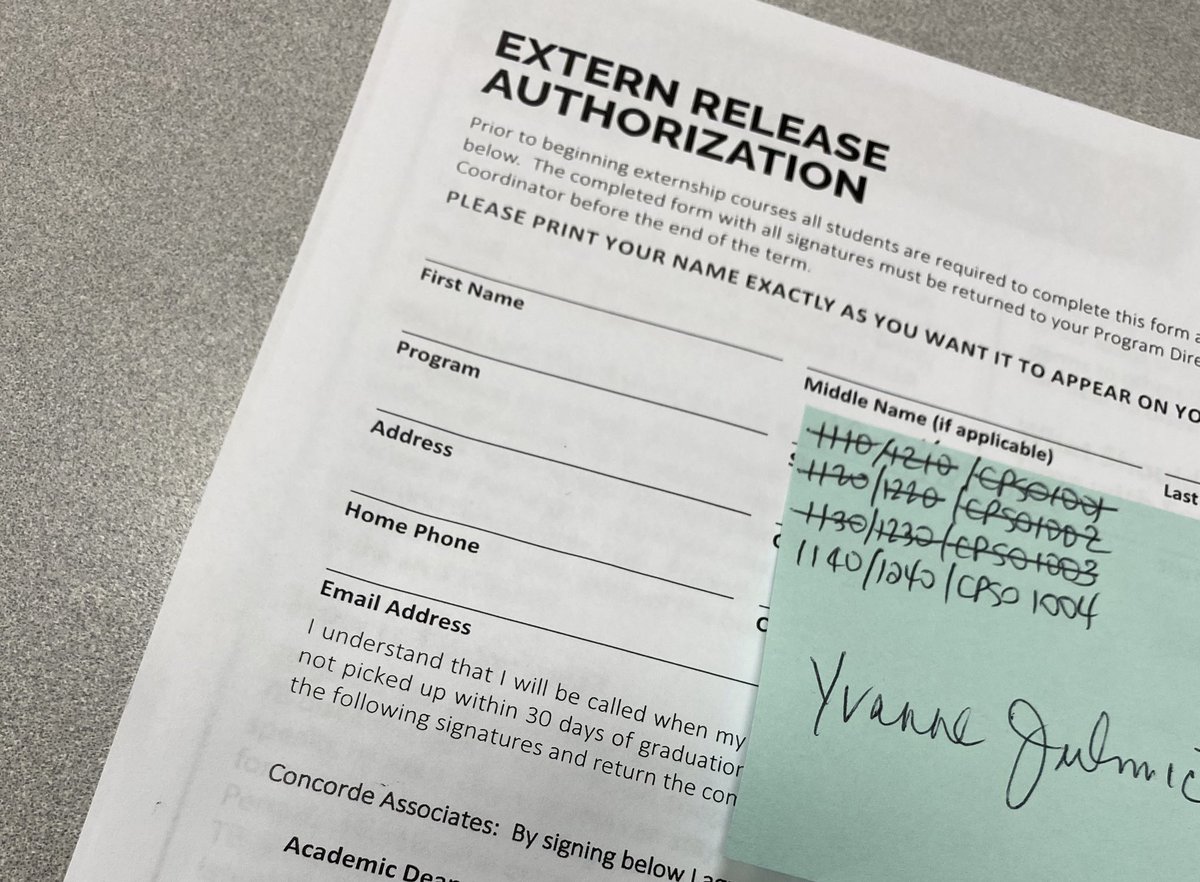 EXTERN RELEASE
AUTHORIZATION
Prior to beginning externship courses all students are required to complete this form a
below. The completed form with all signatures must be returned to your Program Dire
Coordinator before the end of the term.
PLEASE PRINT YOUR NAME EXACTLY AS YOU WANT IT TO APPEAR ON YO
First Name
Middle Name (if applicable)
Last
Program
Address
Home Phone
Email Address
1110/1210/CPSO1001
1120/1220/CPSO1002
1130/1230/CPSO1003
1140/1240/CPSO 1004
Yvanne
I understand that I will be called when my
not picked up within 30 days of graduation
the following signatures and return the con
Concorde Associates: By signing below I ag
Academic Dean